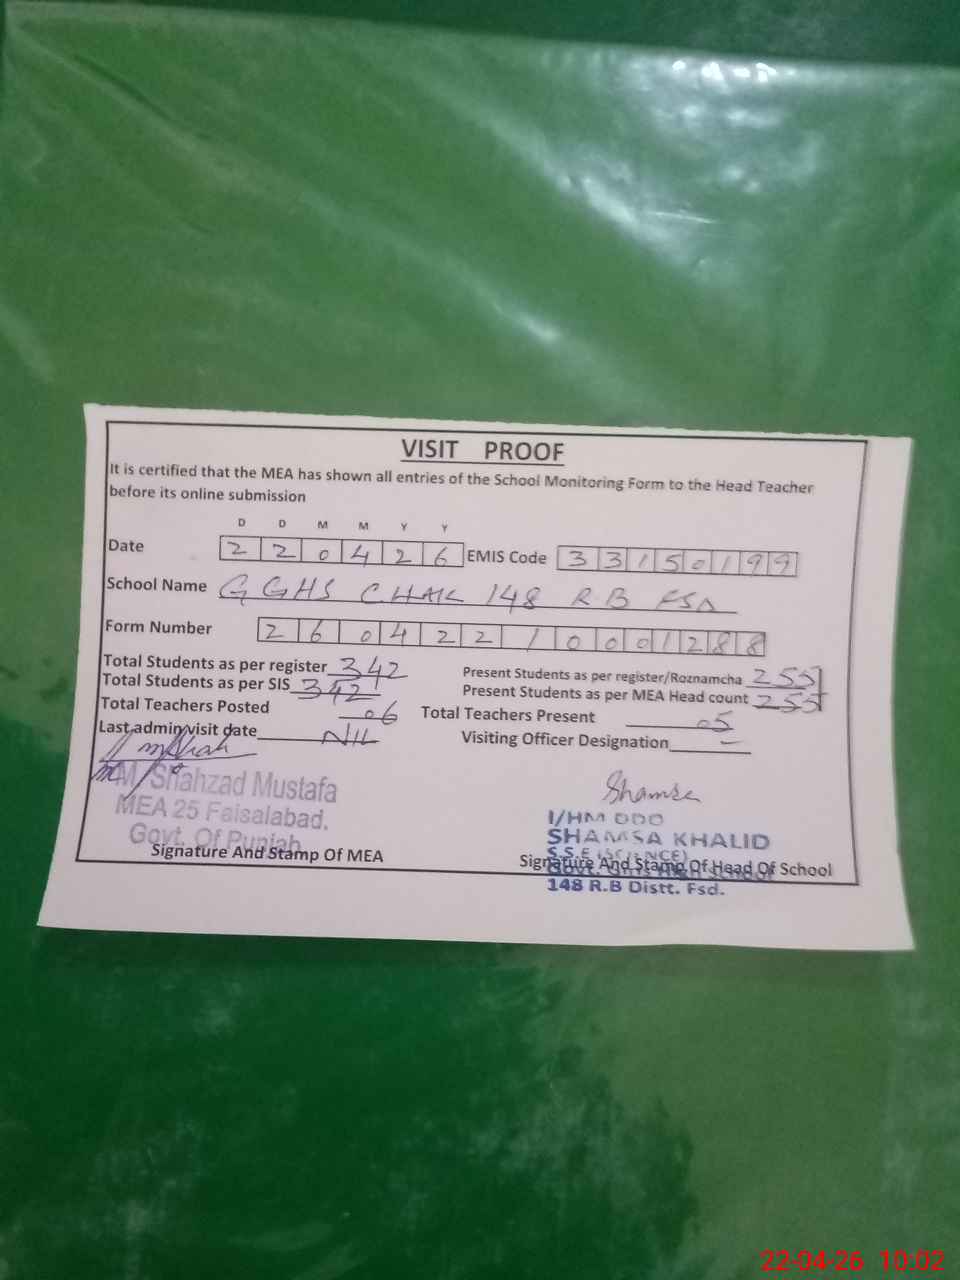 VISIT PROOF
It is certified that the MEA has shown all entries of the School Monitoring Form to the Head Teacher
before its online submission
D D M M Y Y
Date 2 2 0 4 2 6 EMIS Code 3 3 1 5 0 1 9 9
School Name GGHS CHAK 148 R B FSD
Form Number 2 6 0 4 2 2 1 0 0 0 1 2 8 8
Total Students as per register 342 Present Students as per register/Roznamcha 255
Total Students as per SIS 342 Present Students as per MEA Head count 255
Total Teachers Posted 06 Total Teachers Present 05
Last admin visit date NIL Visiting Officer Designation –
M. Shahzad Mustafa
MEA 25 Faisalabad.
Govt. Of Punjab
Signature And Stamp Of MEA
Shamsa
I/HM DDO
SHAMSA KHALID
S.S.E (SCIENCE)
Govt. Girls High School
Signature And Stamp Of Head Of School
148 R.B Distt. Fsd.
22-04-26 10:02